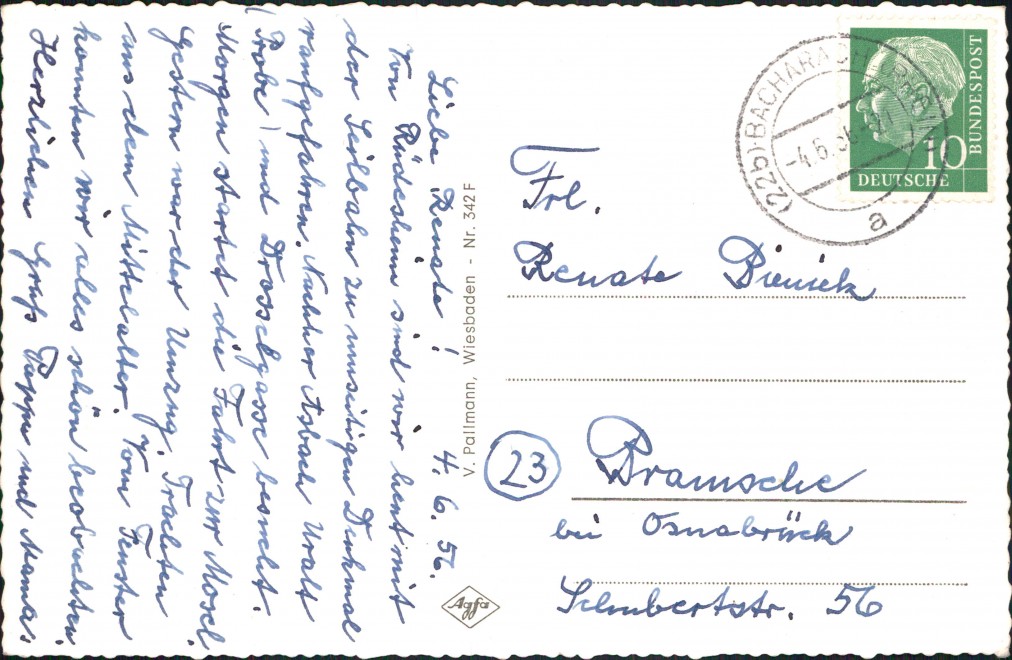 Liebe Renate! 4.6.56.
Von Rüdesheim sind wir heut mit
der Seilbahn zu umseitigen Denkmal
raufgefahren. Nachher Asbach Uralt
(Probe) und Drosselgasse besucht.
Morgen startet die Fahrt zur Mosel
Gestern war der Umzug, Trachten
aus dem Mittelalter. Vom Fenster
konnten wir alles schön beobachten.
Herzlichen Gruß Pappi und Mama.
V. Pallmann, Wiesbaden - Nr. 342 F
Agfa
(22b) BACHARACH
-4.6.56
a
10
DEUTSCHE
BUNDESPOST
Frl.
Renate Bieniek
23 Bramsche
bei Osnabrück
Schubertstr. 56